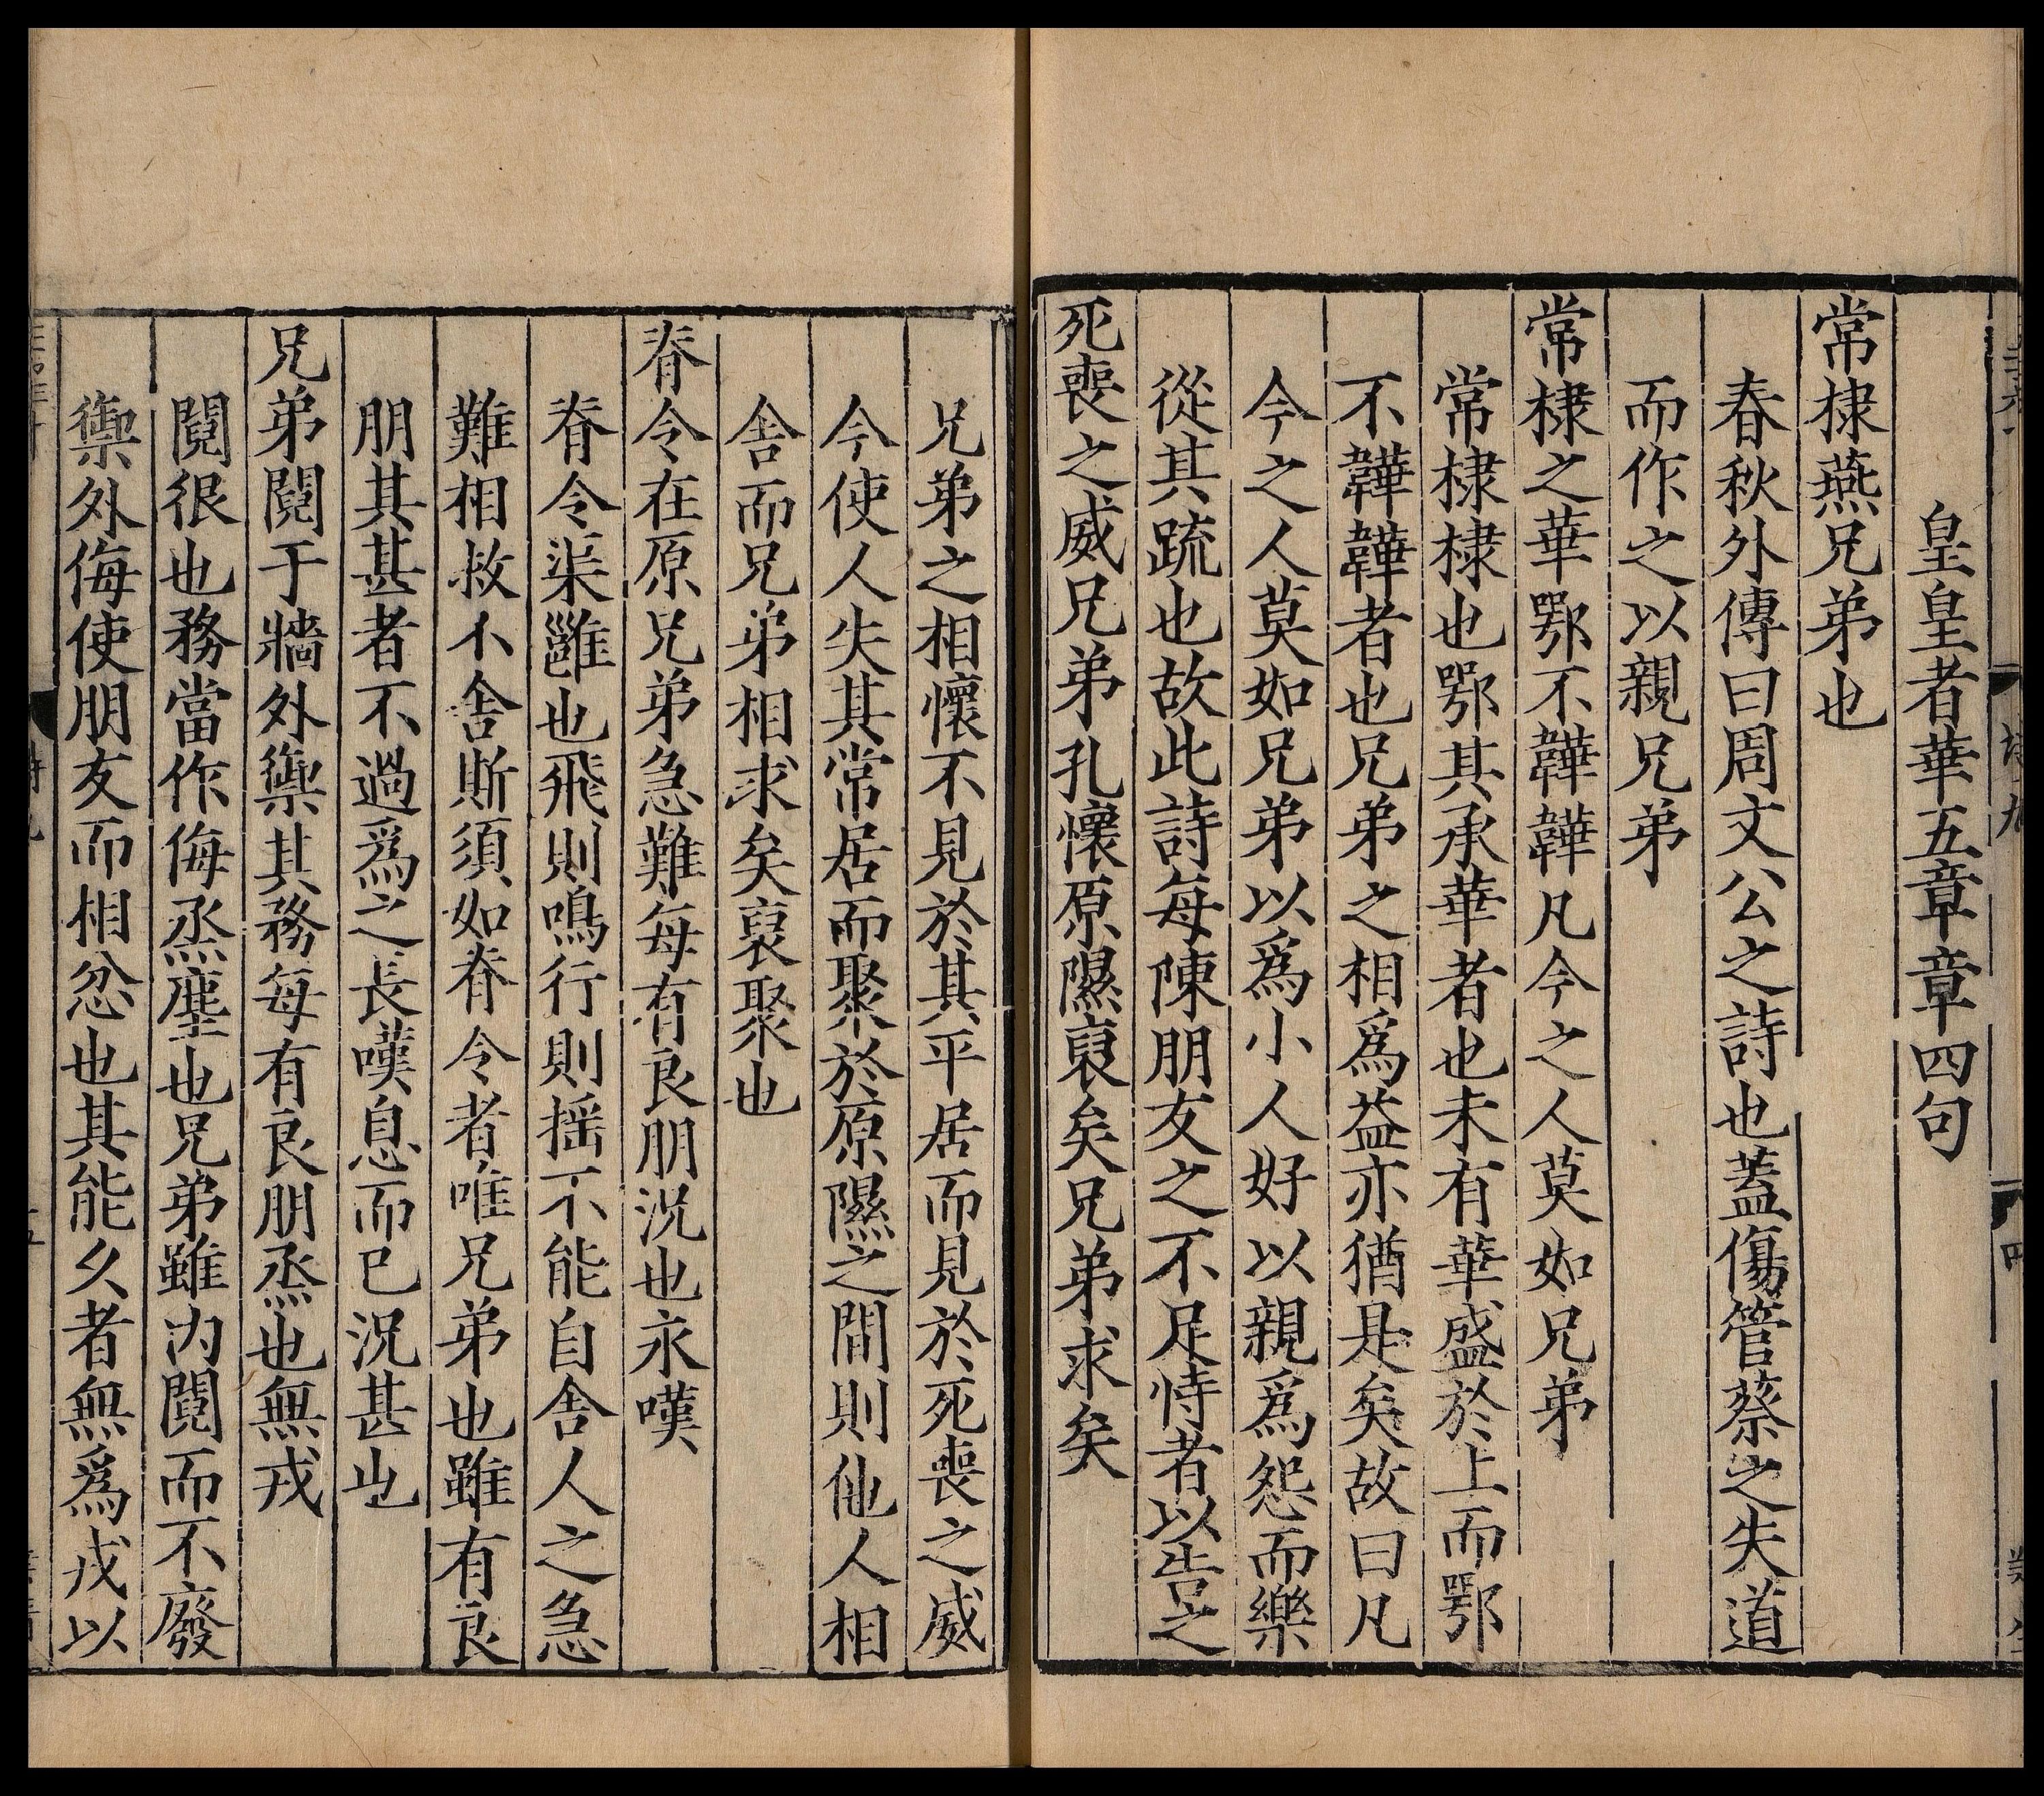 皇皇者華五章章四句
常棣燕兄弟也
春秋外傳曰周文公之詩也蓋傷管蔡之失道
而作之以親兄弟
常棣之華鄂不韡韡凡今之人莫如兄弟
常棣棣也鄂其承華者也未有華盛於上而鄂
不韡韡者也兄弟之相爲益亦猶是矣故曰凡
今之人莫如兄弟以爲小人好以親爲怨而樂
從其疏也故此詩每陳朋友之不足恃者以告之
死喪之威兄弟孔懷原隰裒矣兄弟求矣
兄弟之相懷不見於其平居而見於死喪之威
今使人失其常居而聚於原隰之間則他人相
舍而兄弟相求矣裒聚也
脊令在原兄弟急難每有良朋況也永嘆
脊令渠雝也飛則鳴行則揺不能自舍人之急
難相救不舍斯須如脊令者唯兄弟也雖有良
朋其甚者不過爲之長嘆息而已況甚也
兄弟鬩于牆外禦其務每有良朋烝也無戎
鬩很也務當作侮烝塵也兄弟雖內鬩而不廢
禦外侮使朋友而相忿也其能久者無爲戎以